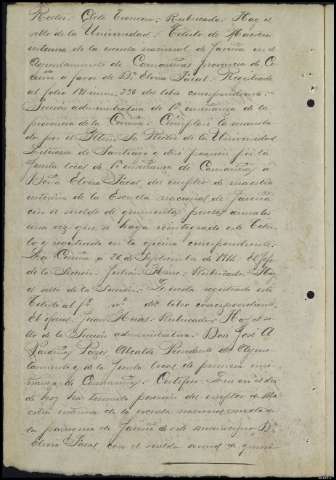 Rector. Cleto Troncoso. Rubricado. Hay el
sello de la Universidad. Título de Maestra
interina de la escuela nacional de Janza en el
Ayuntamiento de Camariñas provincia de Co
ruña a favor de Dª Elvira Pazal. Registrado
al folio núm. 736 del libro correspondiente.
Sección administrativa de 1ª enseñanza de la
provincia de la Coruña. Cúmplase lo manda
do por el Iltmo. Sr. Rector de la Universidad
Literaria de Santiago y dése posesión por la
Junta local de 1ª enseñanza de Camariñas a
Doña Elvira Pazal del empleo de maestra
interina de la Escuela nacional de
con el sueldo de quinientas pesetas anuales
una vez que se haya reintegrado este título
lo y registrado en la oficina correspondiente.
La Coruña a 26 de Septiembre de 1916. El Jefe
de la Sección. Julián. Rubricado. Hay
el sello de la Sección. Queda registrado este
Título al fº nº del libro correspondiente.
El oficial, Juan. Rubricado. Hay el se
llo de la Sección administrativa. Don José A.
López, Alcalde Presidente del Ayun
tamiento y de la Junta local de primera ense
ñanza de Camariñas. Certifico: Que en el día
de hoy ha tomado posesión del empleo de Ma
estra interina de la escuela nacional mixta de
la parroquia de de este municipio Dª
Elvira Pazal con el sueldo anual de quini